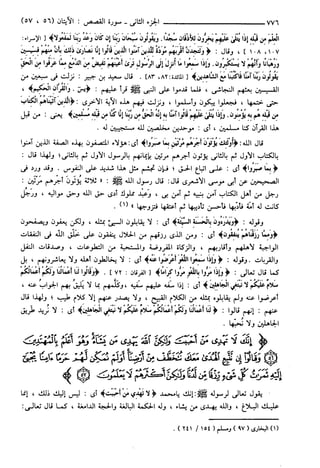 ٧٧٦ الجزء الثاني - سورة القصص : الآيتان (٥٦ ، ٥٧)
العلم من قبله إذا يتلى عليهم يخرون للأذقان سجدا. ويقولون سبحان ربنا إن كان وعد ربنا لمفعولا﴾ [الإسراء :
١٠٧ ، ١٠٨] ، وقال : ﴿ولتجدن أقربهم مودة للذين آمنوا الذين قالوا إنا نصارى ذلك بأن منهم قسيسين
ورهبانا وأنهم لا يستكبرون. وإذا سمعوا ما أنزل إلى الرسول ترى أعينهم تفيض من الدمع مما عرفوا من الحق
يقولون ربنا آمنا فاكتبنا مع الشاهدين﴾ [المائدة : ٨٢ ، ٨٣] . قال سعيد بن جبير : نزلت في سبعين من
القسيسين بعثهم النجاشي ، فلما قدموا على النبي ﷺ قرأ عليهم : ﴿يس . والقرآن الحكيم﴾ ،
حتى ختمها ، فجعلوا يبكون وأسلموا ، ونزلت فيهم هذه الآية الأخرى : ﴿الذين آتيناهم الكتاب
من قبله هم به يؤمنون. وإذا يتلى عليهم قالوا آمنا به إنه الحق من ربنا إنا كنا من قبله مسلمين﴾ يعني : من قبل
هذا القرآن كنا مسلمين ، أي : موحدين مخلصين لله مستجيبين له .
قال الله : ﴿أولئك يؤتون أجرهم مرتين بما صبروا﴾ أي : هؤلاء المتصفون بهذه الصفة الذين آمنوا
بالكتاب الأول ثم بالثاني يؤتون أجرهم مرتين بإيمانهم بالرسول الأول ثم بالثاني ؛ ولهذا قال :
﴿بما صبروا﴾ أي : على اتباع الحق ؛ فإن تجشم مثل هذا شديد على النفوس . وقد ورد في
الصحيحين عن أبي موسى الأشعري قال : قال رسول الله ﷺ : « ثلاثة يؤتون أجرهم مرتين :
رجل من أهل الكتاب آمن بنبيه ثم آمن بي ، وعبد مملوك أدى حق الله وحق مواليه ، ورجل
كانت له أمة فأدبها فأحسن تأديبها ثم أعتقها فتزوجها » (١) .
وقوله : ﴿ويدرءون بالحسنة السيئة﴾ أي : لا يقابلون السيئ بمثله ، ولكن يعفون ويصفحون
﴿ومما رزقناهم ينفقون﴾ أي : ومن الذي رزقهم من الحلال ينفقون على خلق الله في النفقات
الواجبة لأهلهم وأقاربهم ، والزكاة المفروضة والمستحبة من التطوعات ، وصدقات النفل
والقربات . وقوله : ﴿وإذا سمعوا اللغو أعرضوا عنه﴾ أي : لا يخالطون أهله ولا يعاشرونهم ، بل
كما قال تعالى : ﴿وإذا مروا باللغو مروا كراما﴾ [الفرقان : ٧٢] . ﴿وقالوا لنا أعمالنا ولكم أعمالكم
سلام عليكم لا نبتغي الجاهلين﴾ أي : إذا سفه عليهم سفيه ، وكلمهم بما لا يليق بهم الجواب عنه ،
أعرضوا عنه ولم يقابلوه بمثله من الكلام القبيح ، ولا يصدر عنهم إلا كلام طيب ؛ ولهذا قال
عنهم : إنهم قالوا : ﴿لنا أعمالنا ولكم أعمالكم سلام عليكم لا نبتغي الجاهلين﴾ أي : لا نريد طريق
الجاهلين ولا نحبها .
﴿إنك لا تهدي من أحببت ولكن الله يهدي من يشاء وهو أعلم بالمهتدين
وقالوا إن نتبع الهدى معك نتخطف من أرضنا أولم نمكن لهم حرما آمنا يجبى
إليه ثمرات كل شيء رزقا من لدنا ولكن أكثرهم لا يعلمون﴾
يقول تعالى لرسوله ﷺ : إنك يا محمد ﴿لا تهدي من أحببت﴾ أي : ليس إليك ذلك ، إنما
عليك البلاغ ، والله يهدي من يشاء ، وله الحكمة البالغة والحجة الدامغة ، كما قال تعالى :
(١) البخاري (٩٧) ومسلم (١٥٤ / ٢٤١) .